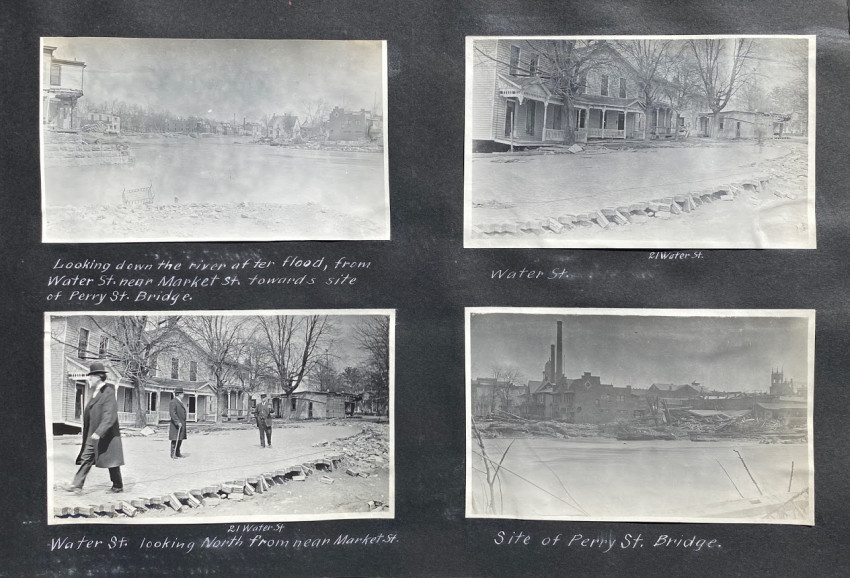 Looking down the river after flood, from
Water St. near Market St. towards site
of Perry St. Bridge.
21 Water St.
Water St.
21 Water St
Water St. looking North from near Market St.
Site of Perry St. Bridge.